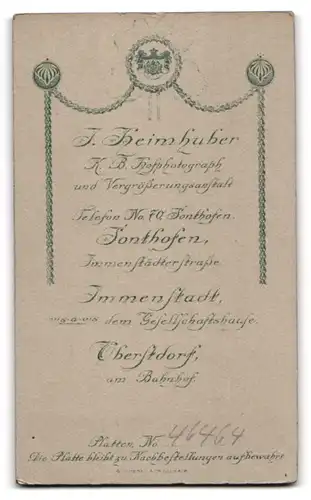 J. Heimhuber
K. B. Hofphotograph
und Vergrößerungsanstalt
Telefon No. 70 Sonthofen.
Sonthofen,
Immenstädterstraße
Immenstadt,
vis-à-vis dem Gesellschaftshause.
Oberstdorf,
am Bahnhof.
Platten No. 46464
Die Platte bleibt zu Nachbestellungen aufbewahrt